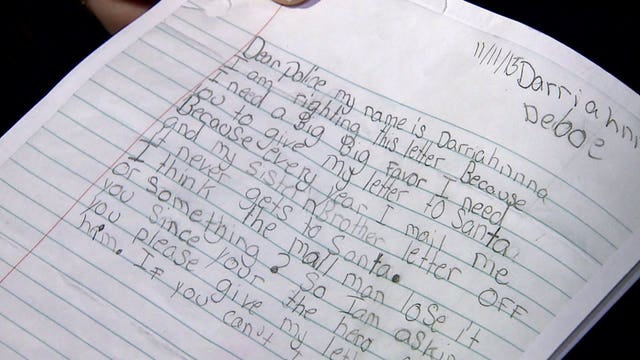 11/11/13 Darriahnn
Deboe
Dear Police my name is Darriahnna
I am righting this letter Because
I need a Big Big Favor I need
you to give my letter to Santa.
Because every year I mail me
and my sister n Brother letter OFF
I never gets to Santa.
I think the mail man lose it
or something? So Iam askin
you since your the hero
you please give my let
him. If you can't